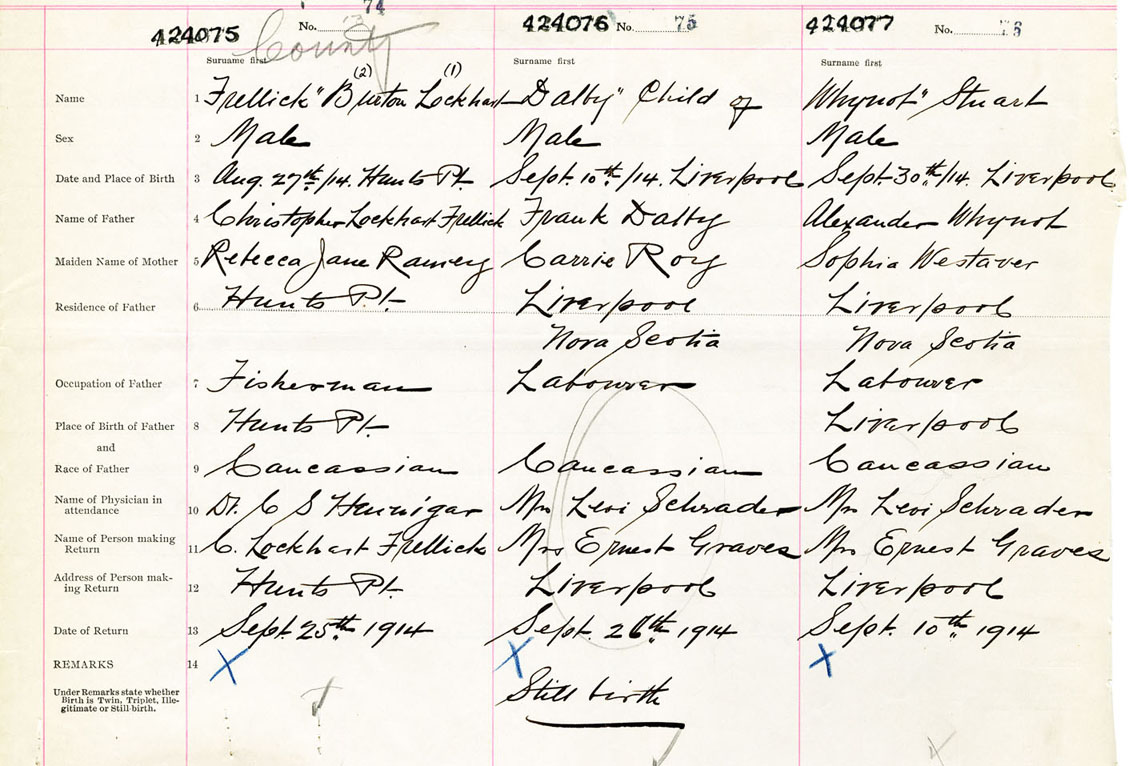 424075 No. 74 County
424076 No. 75
424077 No. 76
Surname first Surname first Surname first
(2) (1)
Name 1 Frellick" Burton Lockhart Dalby" Child of Whynot" Stuart
Sex 2 Male Male Male
Date and Place of Birth 3 Aug. 27th/14. Hunts Pt. Sept. 10th/14. Liverpool Sept. 30th/14. Liverpool
Name of Father 4 Christopher Lockhart Frellick Frank Dalby Alexander Whynot
Maiden Name of Mother 5 Rebecca Jane Ramey Carrie Roy Sophia Westaver
Residence of Father 6 Hunts Pt. Liverpool Liverpool
Nova Scotia Nova Scotia
Occupation of Father 7 Fisherman Labourer Labourer
Place of Birth of Father 8 Hunts Pt. Liverpool
and
Race of Father 9 Caucassian Caucassian Caucassian
Name of Physician in
attendance 10 Dr. C S Hennigar Mrs Levi Schrader Mrs Levi Schrader
Name of Person making
Return 11 C. Lockhart Frellick Mrs Ernest Graves Mrs Ernest Graves
Address of Person mak-
ing Return 12 Hunts Pt. Liverpool Liverpool
Date of Return 13 Sept. 25th 1914 Sept. 26th 1914 Sept. 10th 1914
REMARKS 14 X X X
Under Remarks state whether
Birth is Twin, Triplet, Ille-
gitimate or Still-birth.
Still birth